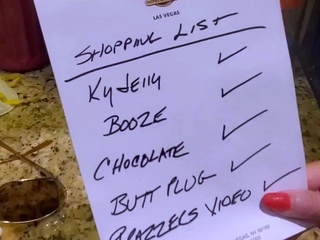 LAS VEGAS
SHOPPING LIST
KY JELLY
BOOZE
CHOCOLATE
BUTT PLUG
BRAZZERS VIDEO